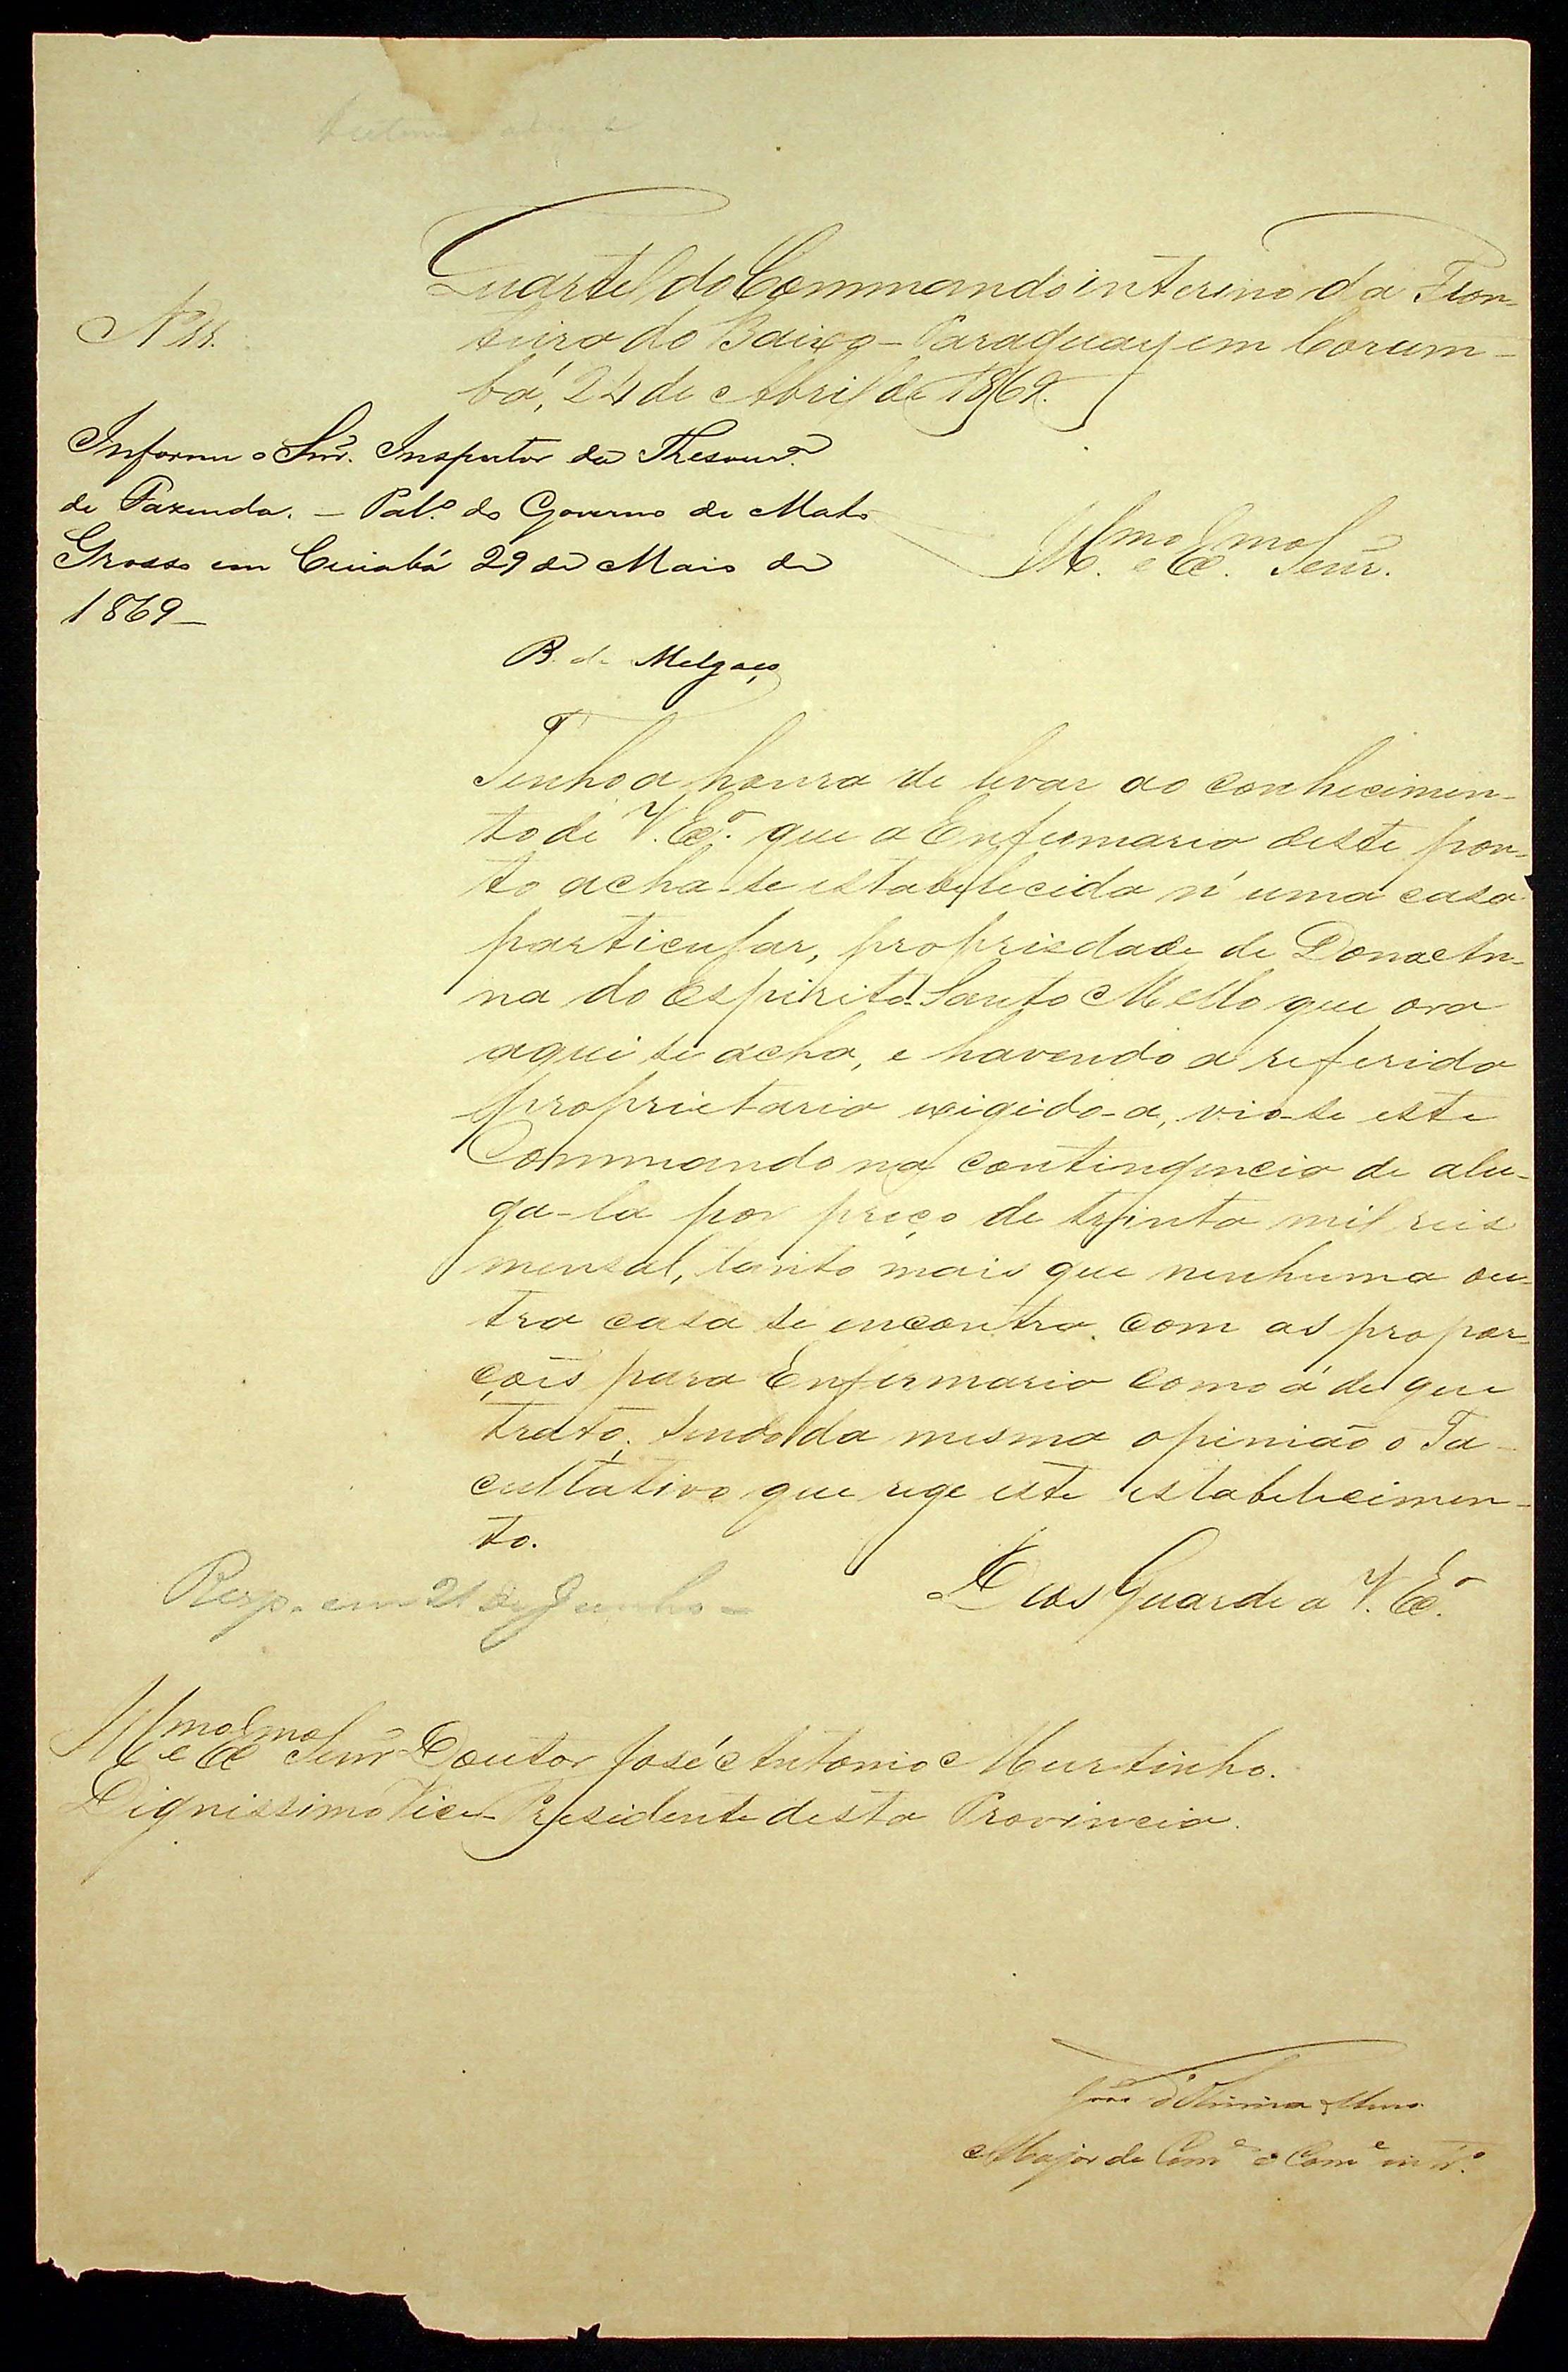 Quartel do Commando interino da Fron-
teira do Baixo-Paraguay em Corum-
bá, 24 de Abril de 1869.
Informe o Snr. Inspector da Thesourª.
de Fazenda. – Palº. do Governo de Mato
Grosso em Cuiabá 29 de Maio de
1869 –
B. de Melgaço
Illmo. e Exmo. Senr.
Tenho a honra de levar ao conhecimen-
to de V. Exª. que a Enfermaria deste pon-
to acha-se estabelecida n'uma casa
particular, propriedade de Dona An-
na do Espirito Santo Mello que ora
aqui se acha, e havendo a referida
proprietaria exigido-a, vio-se este
Commando na contingencia de alu-
ga-la por preço de trinta mil reis
mensal, tanto mais que nenhuma ou-
tra casa se encontra com as propor-
çoẽs para Enfermaria como á de que
trato, sendo da mesma opinião o Fa-
cultativo que rege este estabelecimen-
to.
Deos Guarde a V. Exª.
Resp. em 21 de Junho –
Illmo e Exmo Senr Doutor José Antonio Murtinho.
Dignissimo Vice-Presidente desta Provincia.
João d'Oliveira
Major de Comᵉ e Comᵉ intº.